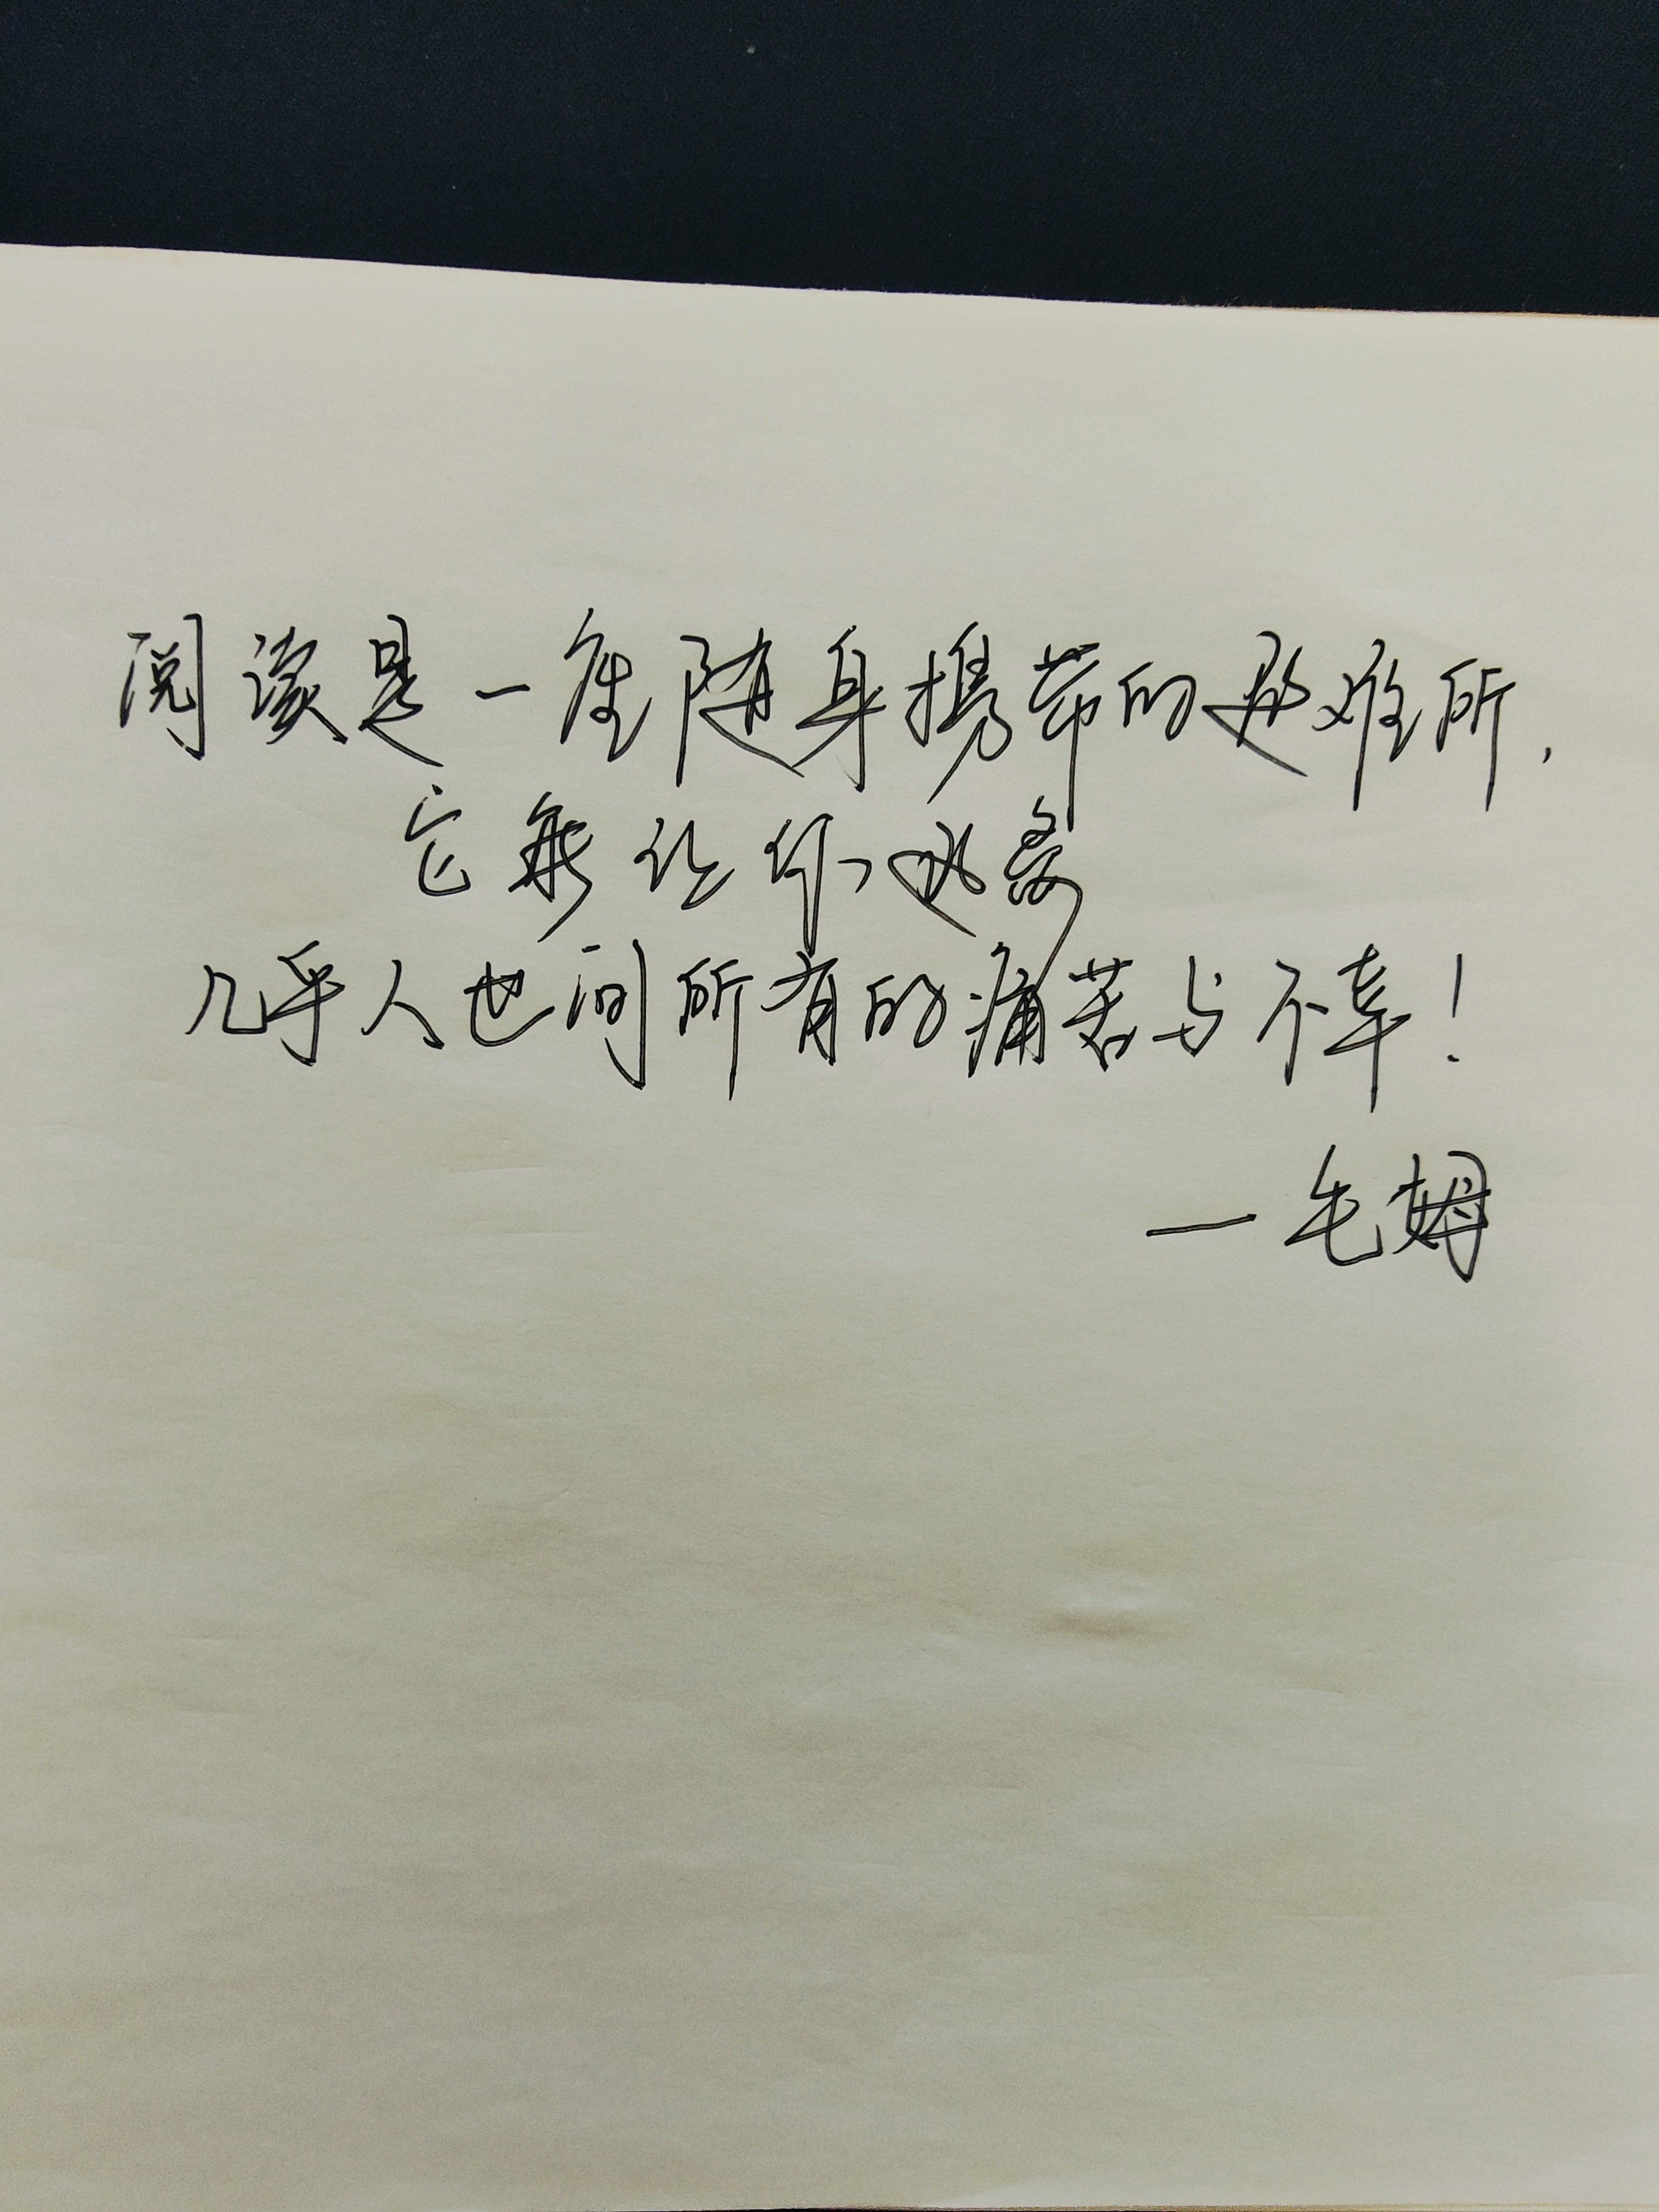 阅读是一座随身携带的避难所，
它能让你逃离
几乎人世间所有的痛苦与不幸！
—毛姆